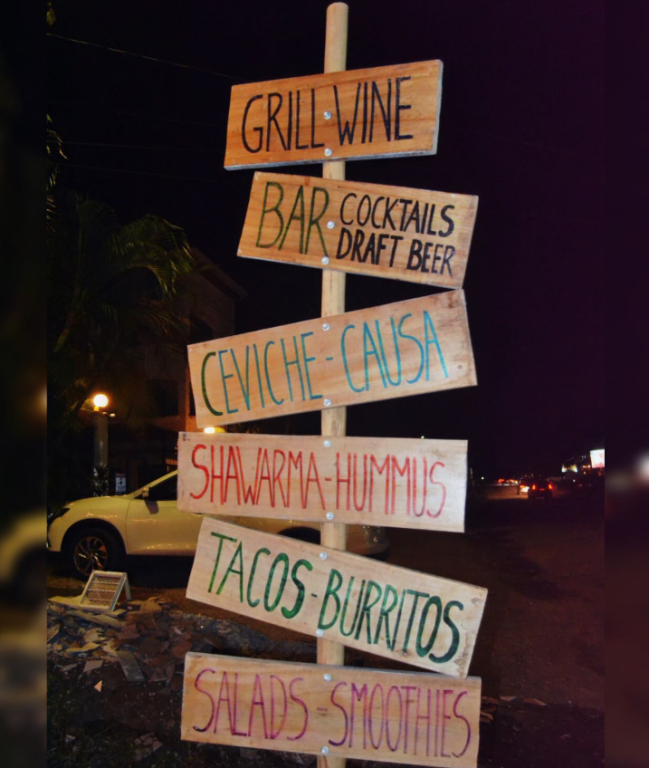 GRILL WINE
BAR COCKTAILS
DRAFT BEER
CEVICHE-CAUSA
SHAWARMA-HUMMUS
TACOS-BURRITOS
SALADS-SMOOTHIES